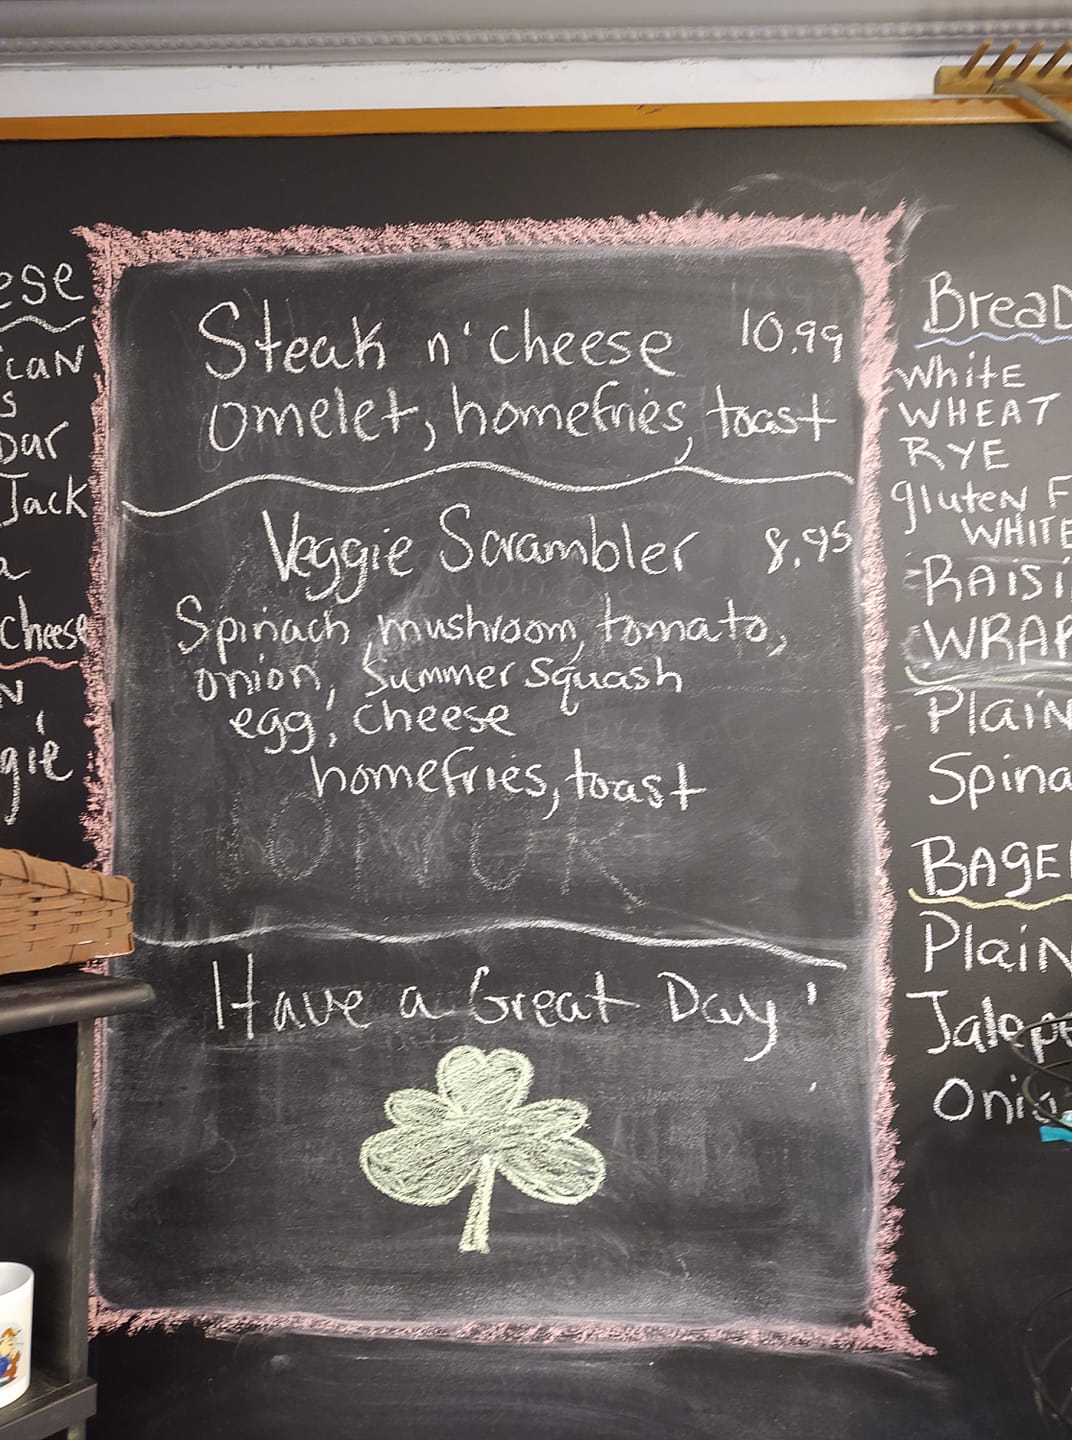 Steak n' cheese 10.99
omelet, homefries, toast
Veggie Scrambler 8.95
Spinach, mushroom, tomato,
onion, Summer squash
egg, cheese
homefries, toast
Have a Great Day!
ese
ican
s
Dar
Jack
a
cheese
N
gie
BreaD
White
WHEAT
RYE
gluten F
WHITE
RAISI
WRAP
PlaiN
Spina
BAGEL
PlaiN
Jalape
Onio